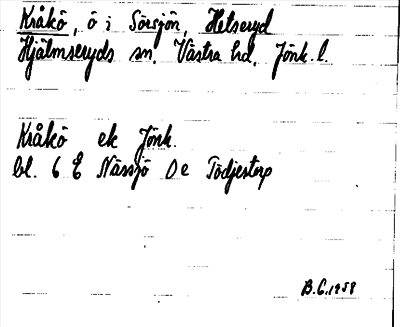 Kråkö, ö i Sörsjön, Hetseryd
Hjälmseryds sn. Västra hd. Jönk. l.
Kråkö ek Jönk.
bl. 6 E Nässjö 0e Tödjestorp
B.G. 1958